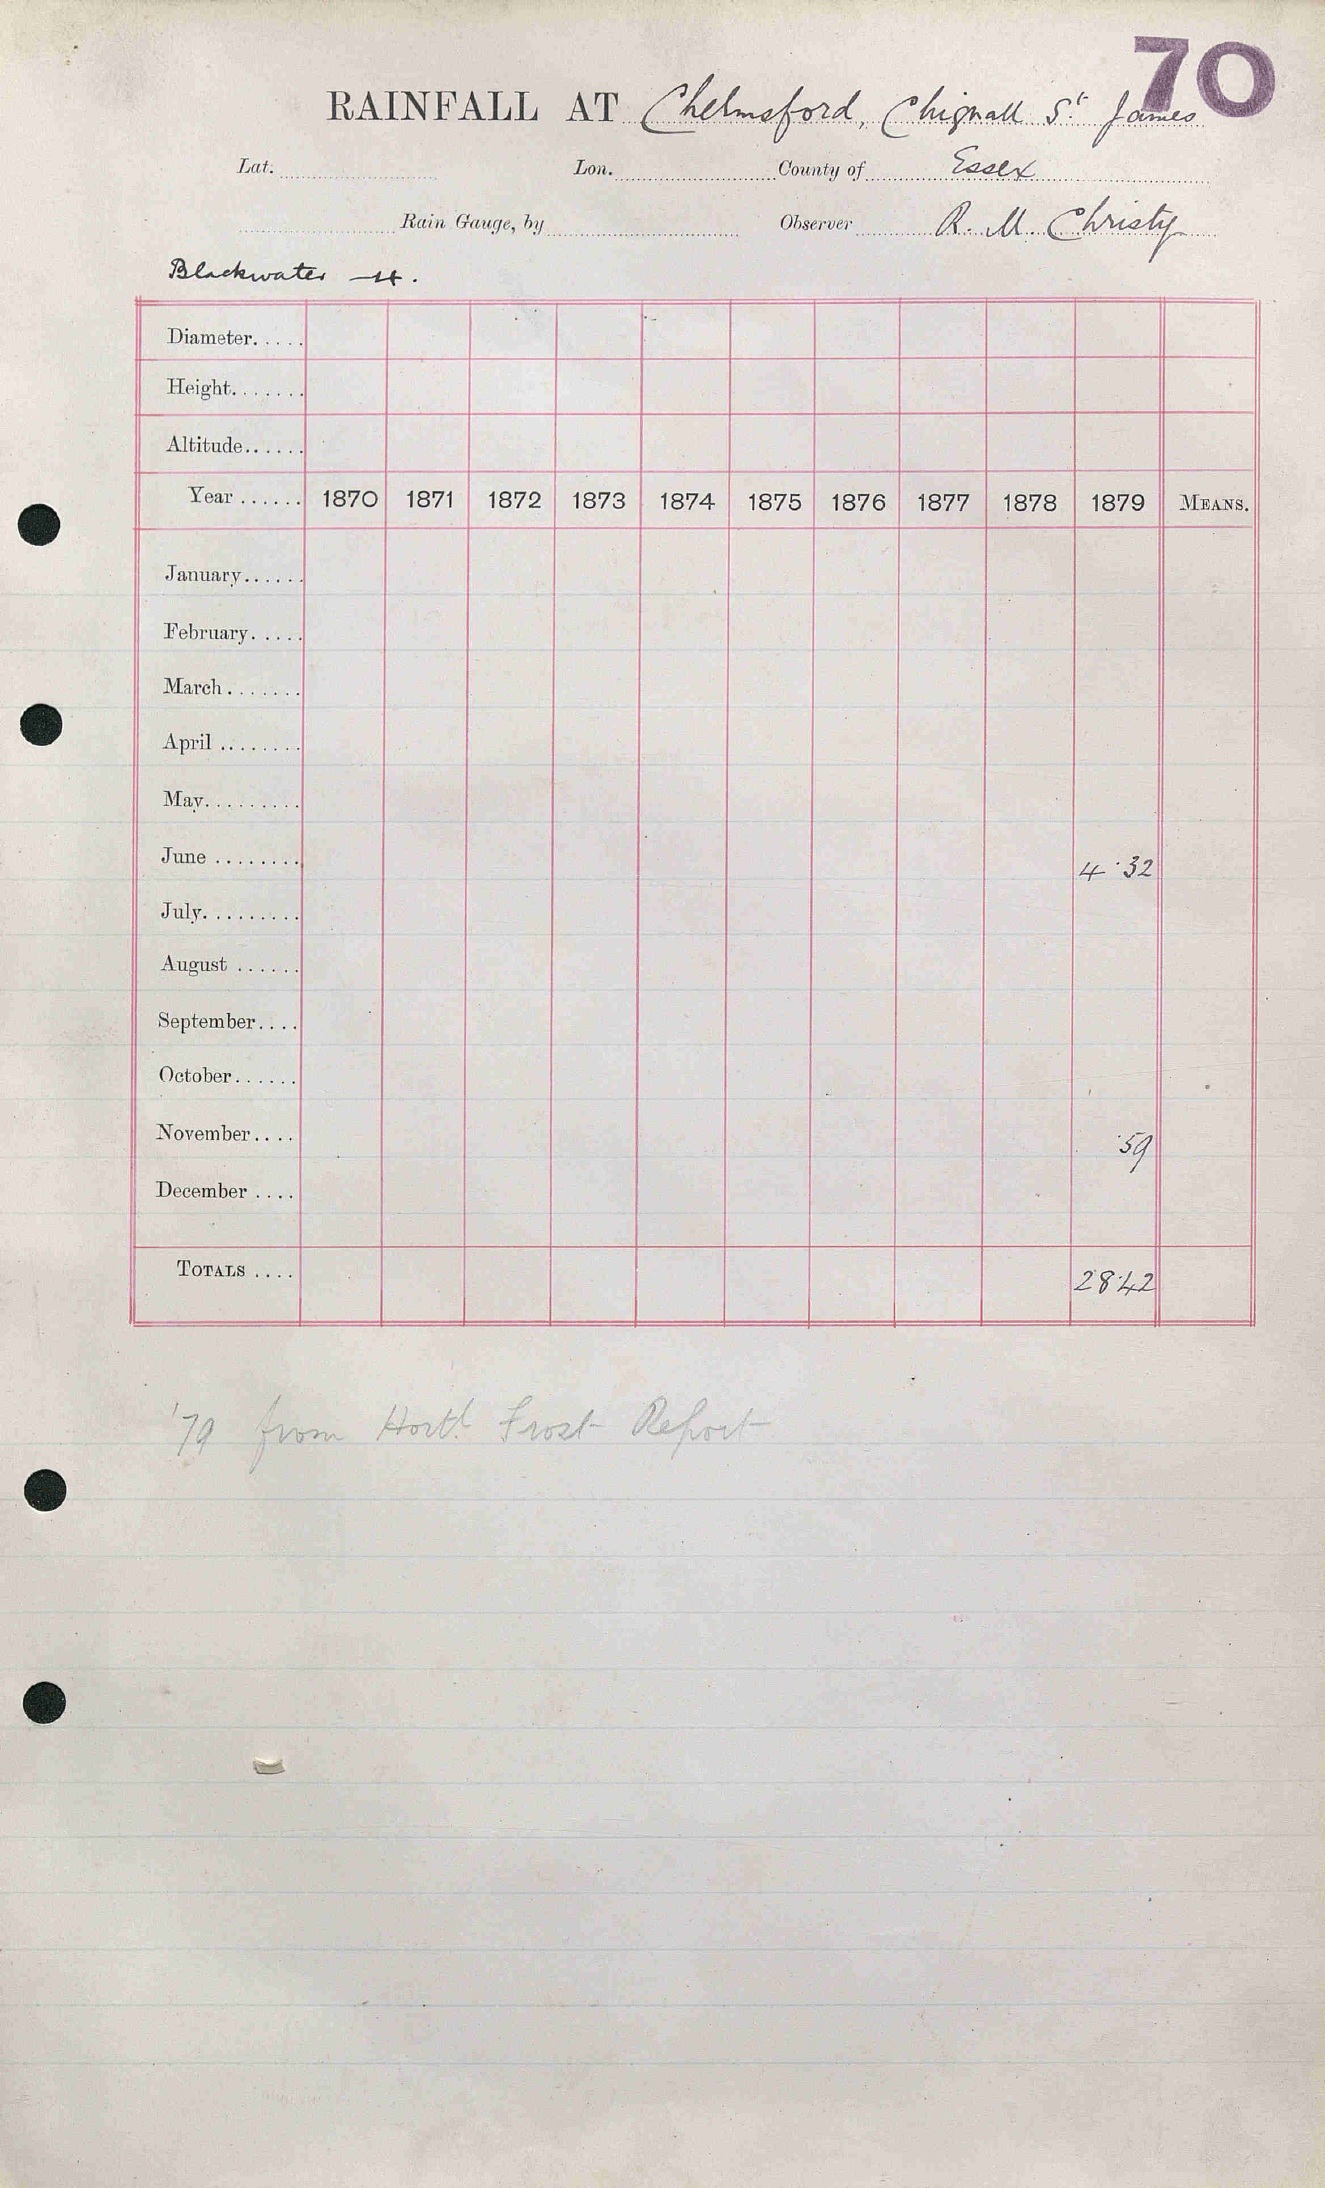 70
RAINFALL AT Chelmsford, Chignall St. James
Lat. Lon. County of Essex
Rain Gauge, by Observer R. M. Christy
Blackwater —14.
Diameter.....
Height.......
Altitude......
Year ...... 1870 1871 1872 1873 1874 1875 1876 1877 1878 1879 MEANS.
January......
February.....
March.......
April ........
May.........
June ........ 4·32
July.........
August ......
September....
October......
November.... ·59
December ....
TOTALS .... 28·42
'79 from Hortl. Frost Report